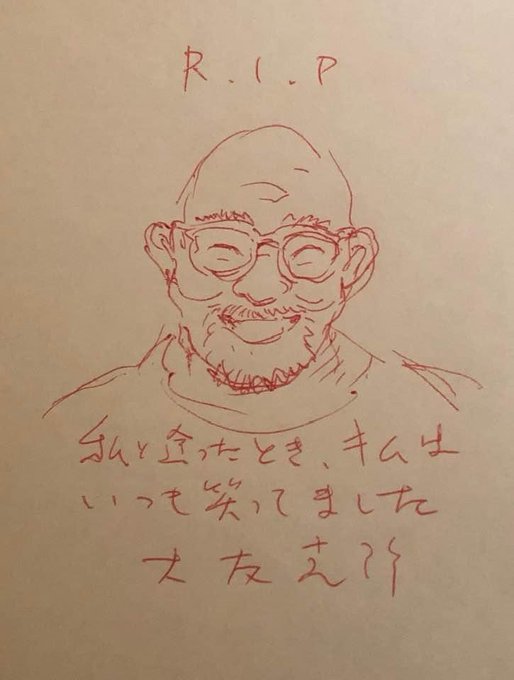 R.I.P
私と逢ったとき、キムは
いつも笑ってました
大友克洋